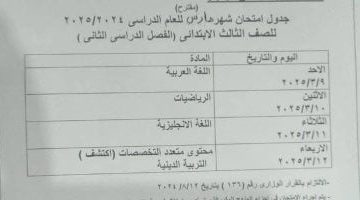 (مقترح)
جدول امتحان شهر مارس للعام الدراسى ٢٠٢٥/٢٠٢٤
للصف الثالث الابتدائى ( الفصل الدراسى الثانى )
اليوم والتاريخ المادة
الاحد
٢٠٢٥/٣/٩ اللغة العربية
الاثنين
٢٠٢٥/٣/١٠ الرياضيات
الثلاثاء
٢٠٢٥/٣/١١ اللغة الانجليزية
الاربعاء
٢٠٢٥/٣/١٢ محتوى متعدد التخصصات ( اكتشف )
التربية الدينية
-الالتزام بالقرار الوزارى رقم (١٣٦) بتاريخ ٢٠٢٤/٨/١٢